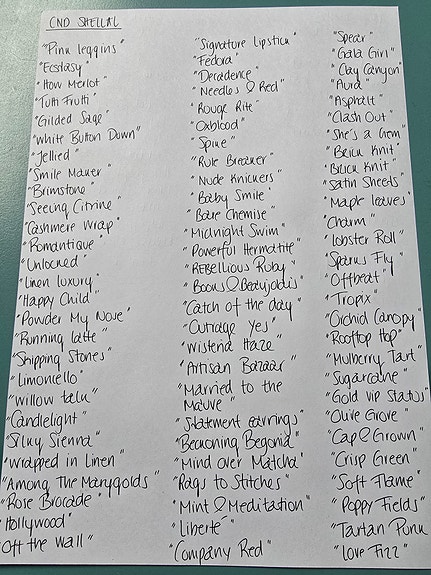 CND SHELLAC
"Pink leggins"
"Ecstasy"
"How Merlot"
"Tutti Frutti"
"Gilded Sage"
"White Button Down"
"Jellied"
"Smile Maker"
"Brimstone"
"Seeing Citrine"
"Cashmere Wrap"
"Romantique"
"Unlocked"
"Linen luxury"
"Happy Child"
"Powder My Nose"
"Running latte"
"Skipping Stones"
"Limoncello"
"Willow talk"
"Candlelight"
"Silky Sienna"
"Wrapped in Linen"
"Among The Marygolds"
"Rose Brocade"
"Hollywood"
"Off the Wall"
"Signature Lipstick"
"Fedora"
"Decadence"
"Needles & Red"
"Rouge Rite"
"Oxblood"
"Spike"
"Rule Breaker"
"Nude Knickers"
"Baby Smile"
"Bare Chemise"
"Midnight Swim"
"Powerful Hematite"
"REBellious Ruby"
"Books & Beaujolais"
"Catch of the day"
"Outrage Yes"
"Wisteria Haze"
"Artisan Bazaar"
"Married to the
Mauve"
"Statement earrings"
"Beckoning Begonia"
"Mind over Matcha"
"Rags to Stitches"
"Mint & Meditation"
"Liberte"
"Company Red"
"Spear"
"Gala Girl"
"Clay Canyon"
"Aura"
"Asphalt"
"Clash Out"
"She's a Gem"
"Brick Knit"
"Brick Knit"
"Satin Sheets"
"Maple leaves"
"Charm"
"Lobster Roll"
"Sparks Fly"
"Offbeat"
"Tropix"
"Orchid Canopy"
"Rooftop Hop"
"Mulberry Tart"
"Sugarcane"
"Gold Vip Status"
"Olive Grove"
"Cap & Grown"
"Crisp Green"
"Soft Flame"
"Poppy Fields"
"Tartan Punk"
"Love Fizz"